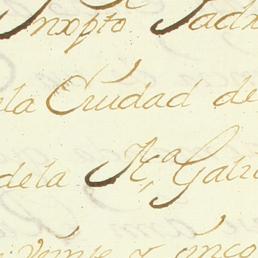 Inxpto Padr
la Ciudad de
dela Na, Gali
Veinte y cinco